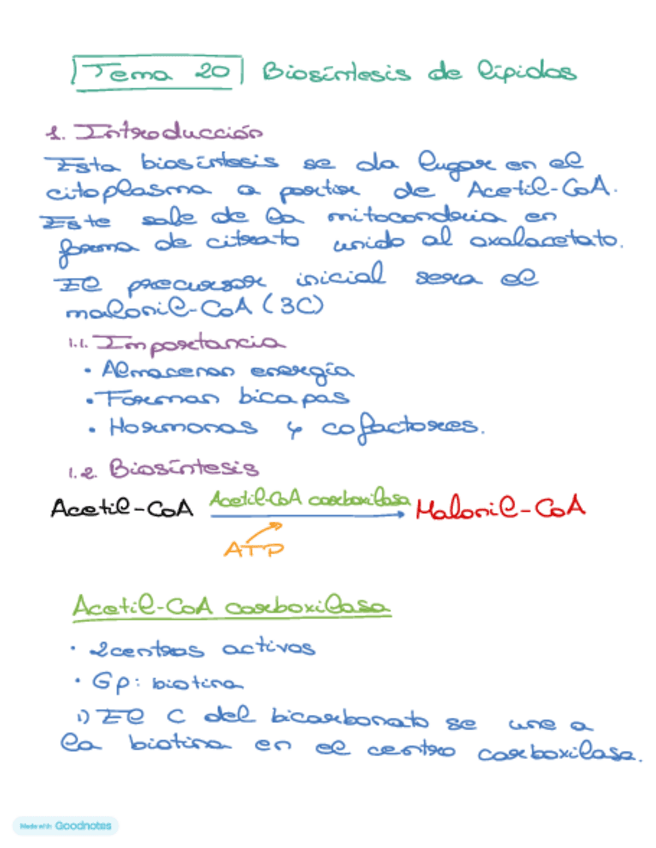 Tema 20 Biosíntesis de lípidos
1. Introducción
Esta biosíntesis se da lugar en el
citoplasma a partir de Acetil-CoA.
Este sale de la mitocondria en
forma de citrato unido al oxalacetato.
El precursor inicial sera el
malonil-CoA (3C)
1.1. Importancia
• Almacenan energía
• Forman bicapas
• Hormonas y cofactores.
1.2. Biosíntesis
Acetil-CoA Acetil-CoA carboxilasa Malonil-CoA
ATP
Acetil-CoA carboxilasa
• 2 centros activos
• Gp: biotina
1) El C del bicarbonato se une a
la biotina en el centro carboxilasa.
Made with Goodnotes